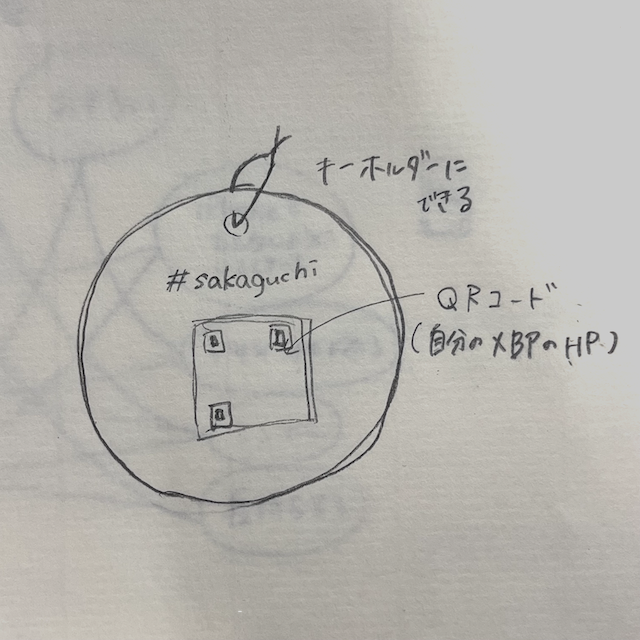 キーホルダーに
できる
#sakaguchi
QRコード
(自分のXBPのHP.)